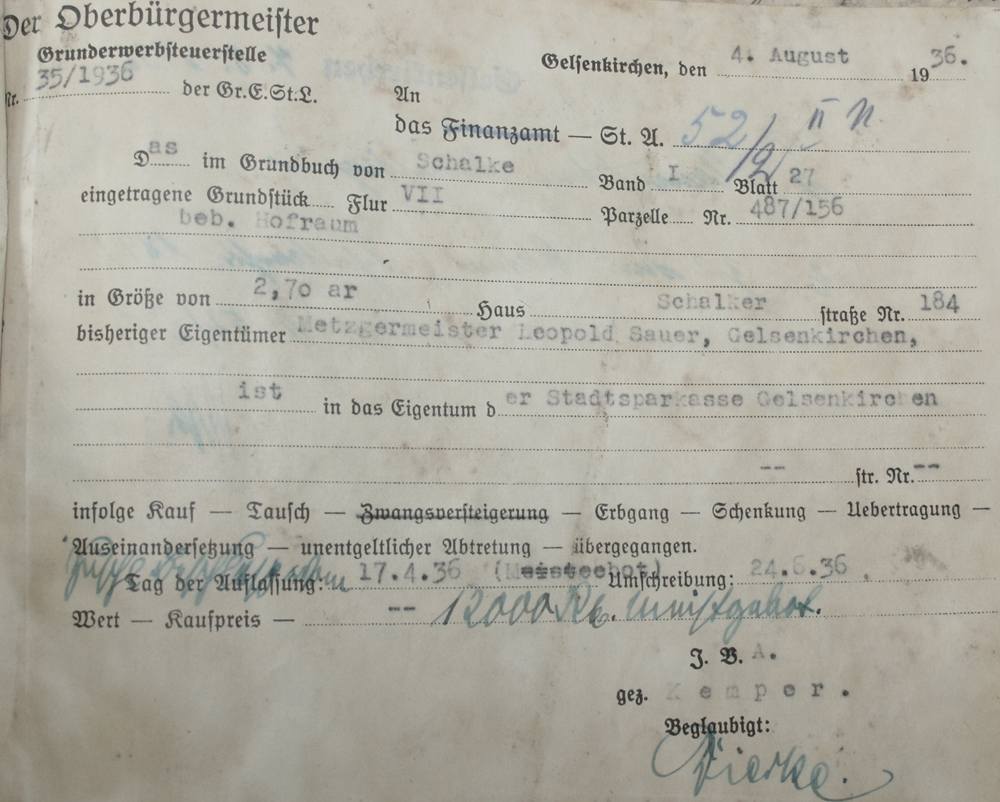 Der Oberbürgermeister
Grunderwerbsteuerstelle
Gelsenkirchen, den 4. August 1936.
Nr. 35/1936 der Gr.E.St.L.
An
das Finanzamt — St. A. 52/12 II N
Das im Grundbuch von Schalke Band I Blatt 27
eingetragene Grundstück Flur VII Parzelle Nr. 487/156
beb. Hofraum
in Größe von 2,70 ar Haus Schalker straße Nr. 184
bisheriger Eigentümer Metzgermeister Leopold Sauer, Gelsenkirchen,
ist in das Eigentum der Stadtsparkasse Gelsenkirchen
-- str. Nr. --
infolge Kauf — Tausch — Zwangsversteigerung — Erbgang — Schenkung — Uebertragung —
Auseinandersetzung — unentgeltlicher Abtretung — übergegangen.
Tag der Auflassung: 17.4.36 (Meisteebot) Umschreibung: 24.6.36
Wert — Kaufpreis — -- 12000 Rm. Meistgebot.
J. V. A.
gez. Kemper.
Beglaubigt: